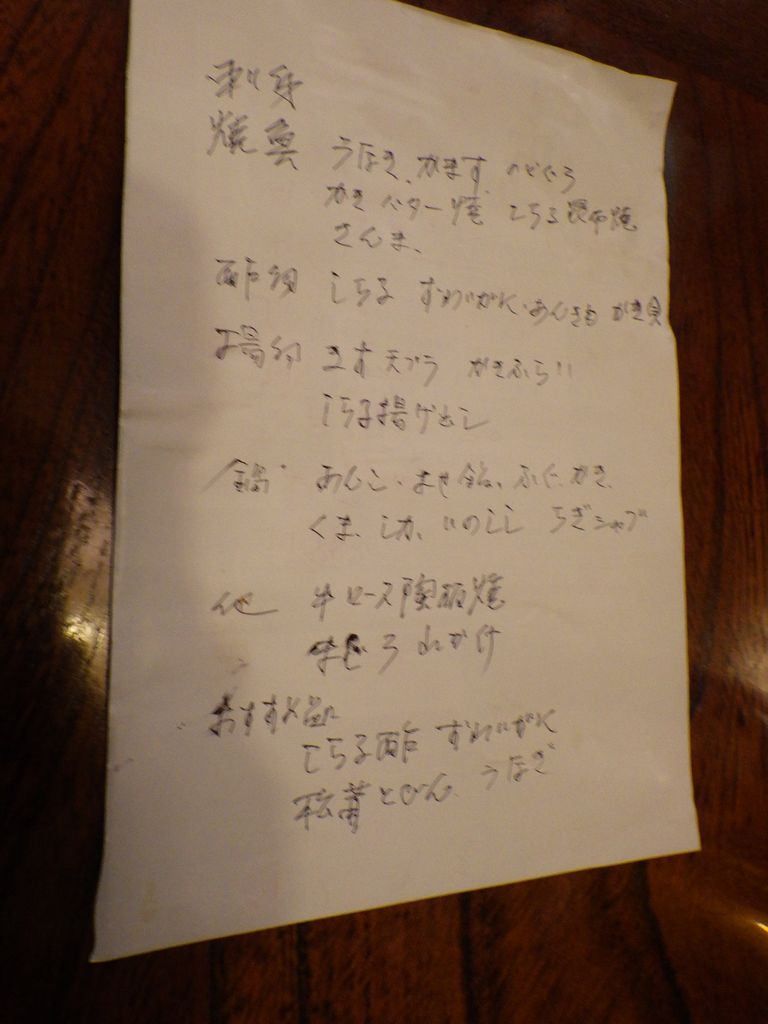 刺身
焼魚 うほぎ、かます、のどぐろ
かきバター焼 しらこ昆布焼
さんま、
酢物 しらこ ずわいがに・あんきも かき貝
揚物 きす天プラ かきふらい
しらこ揚げ出し
鍋 あんこ・よせ鍋、ふぐ、かき
くま、しか、いのしし うぎシャブ
他 牛ロース陶板焼
まぐろ山かけ
おすすめ品
しらこ酢 ずわいがに
松茸どびん うほぎ